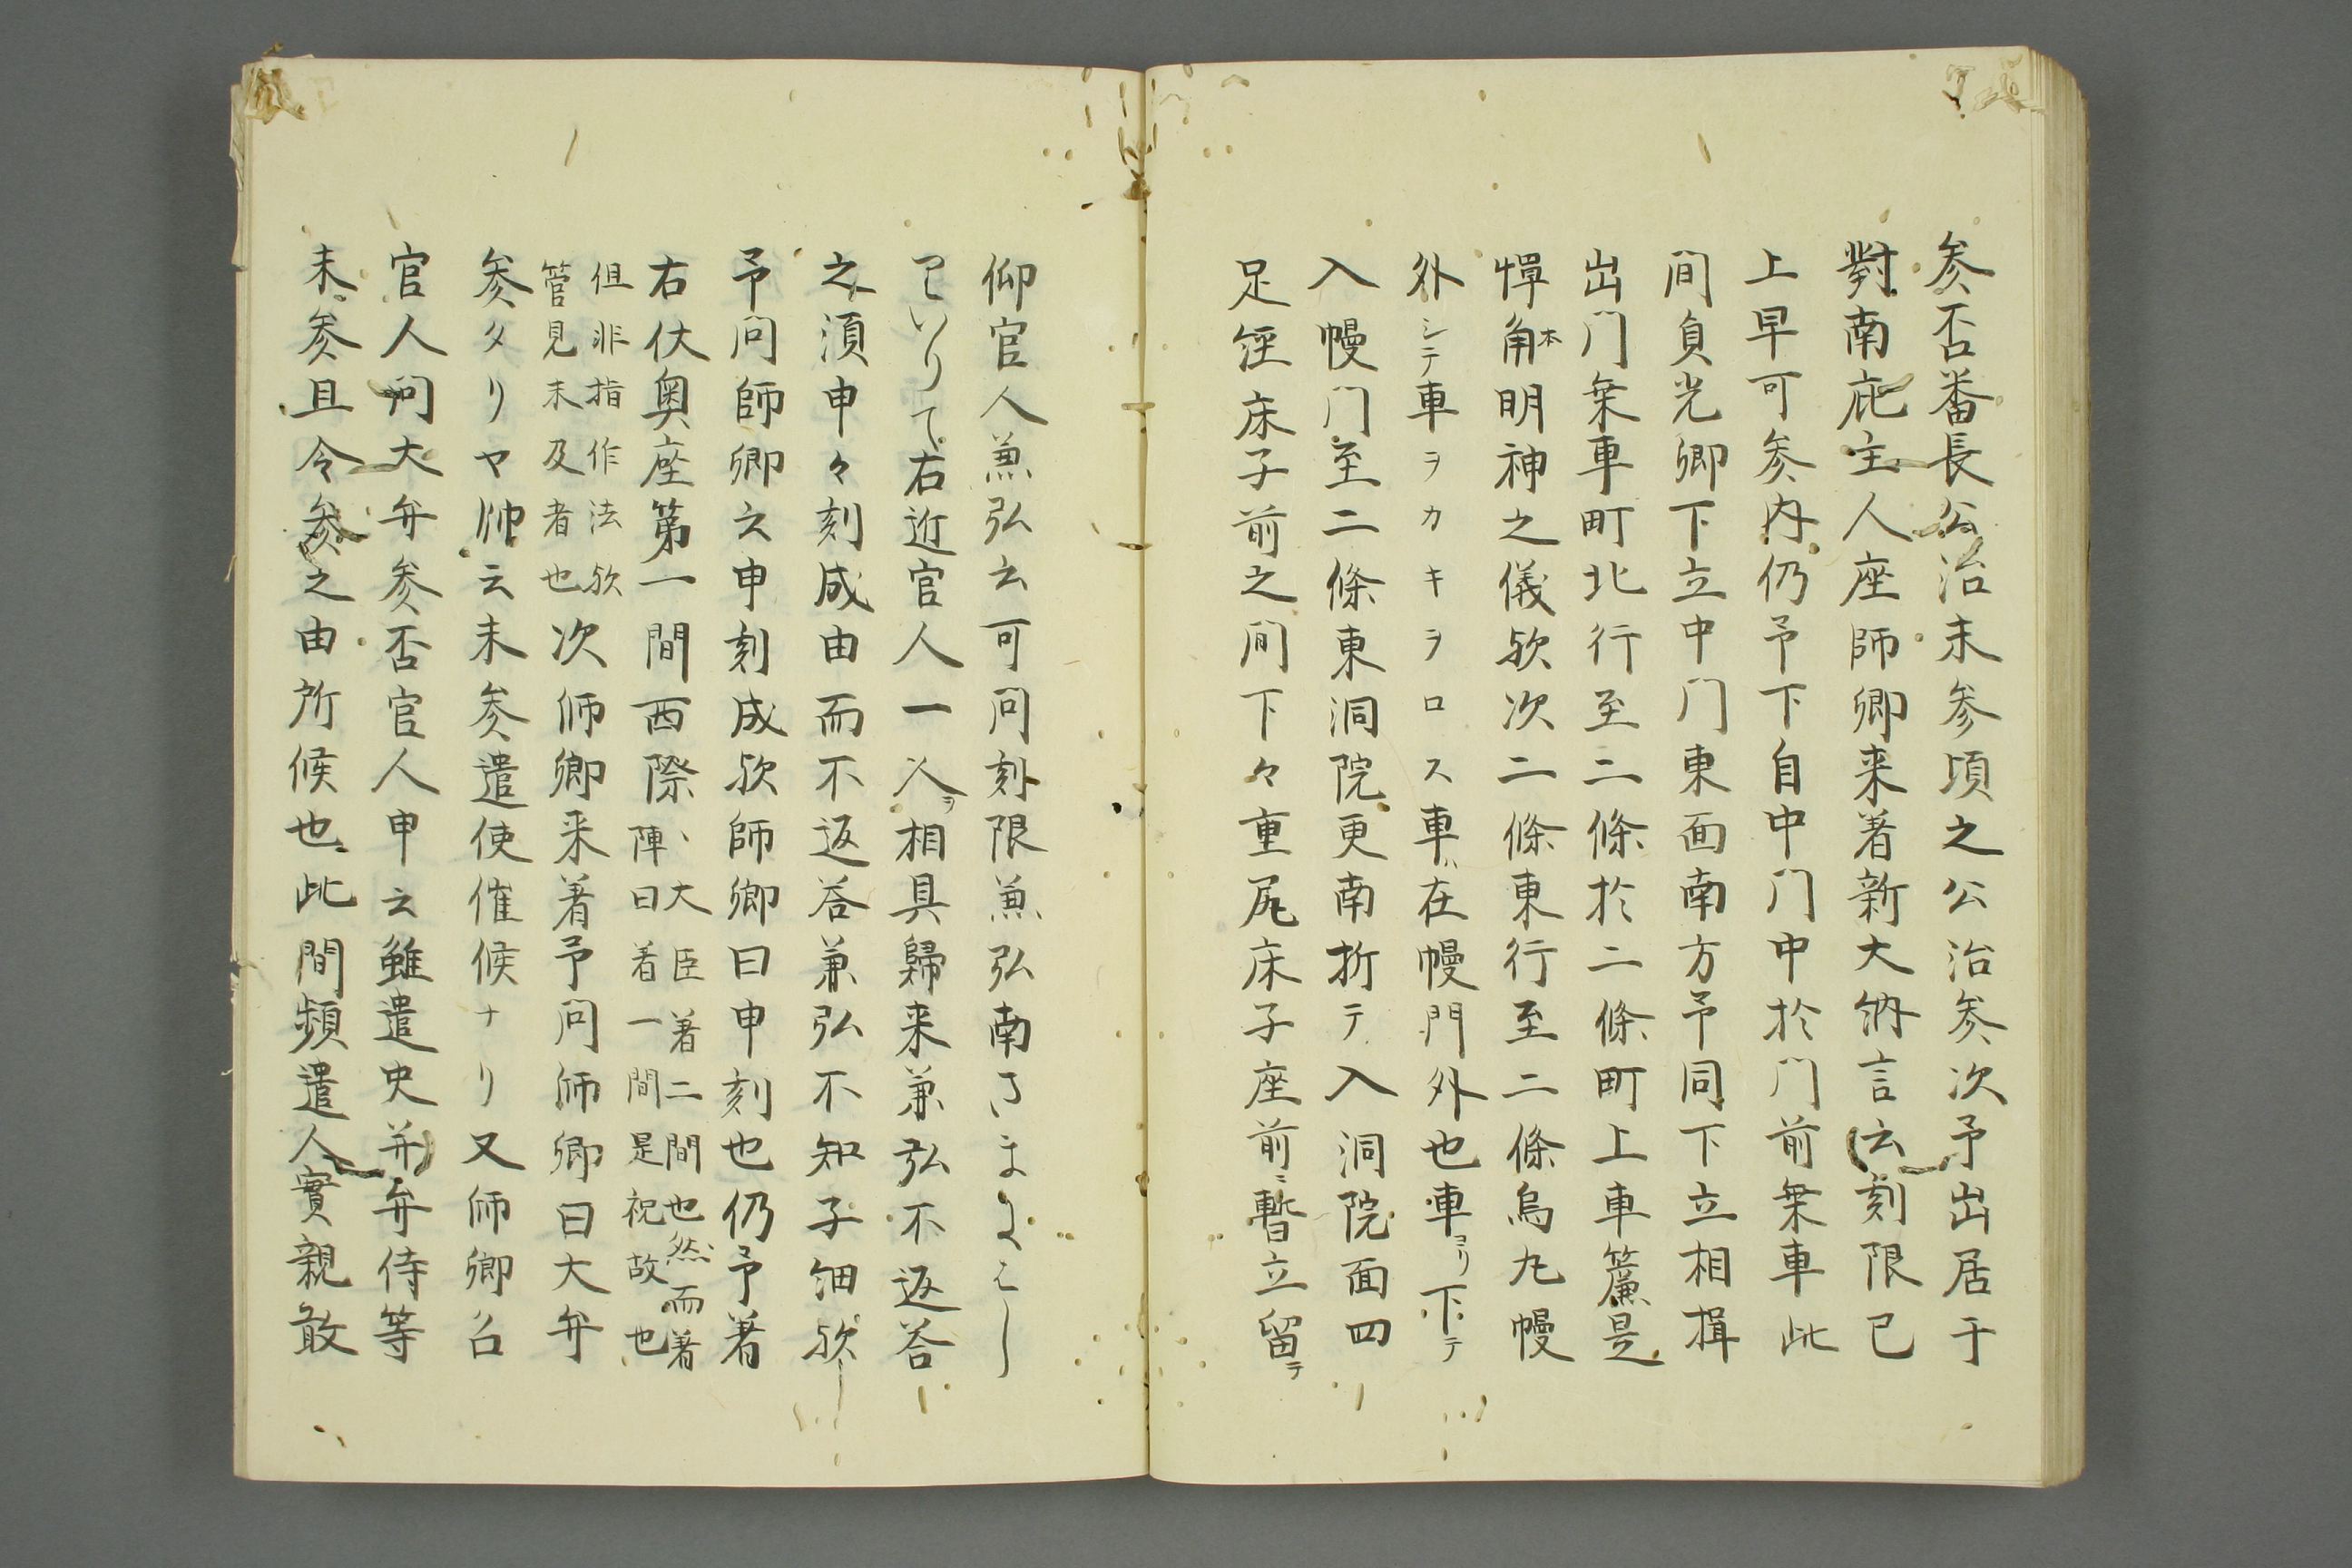 参否番長公治未参頃之公治参次予出居于
對南庇主人座師卿来著新大納言云刻限已
上早可参内仍予下自中门中於门前乗車此
间負光卿下立中门東面南方予同下立相揖
出门乗車町北行至二條於二條町上車簾是
憚角本明神之儀欤次二條東行至二條烏丸幔
外シテ車ヲカキヲロス車ハ在幔門外也車ヨリ下テ
入幔门至二條東洞院更南折テ入洞院面四
足經床子前之间下々重尻床子座前ニ暫立留テ
仰官人兼弘云可问刻限兼弘南
右近官人一人ヲ相具歸来兼弘不返答
之須申々刻成由而不返答兼弘不知子細欤
予问師卿云申刻成欤師卿曰申刻也仍予著
右伏奥座第一間西際、大臣著二間也然而著
陣曰着一間是祝故也
但非指作法欤
管見未及者也次師卿来著予问師卿曰大弁
参タリヤ帥云未参遣使催候ナリ又師卿召
官人问大弁参否官人申云雖遣史并弁侍等
未参且令参之由所候也此間頻遣人實親敢